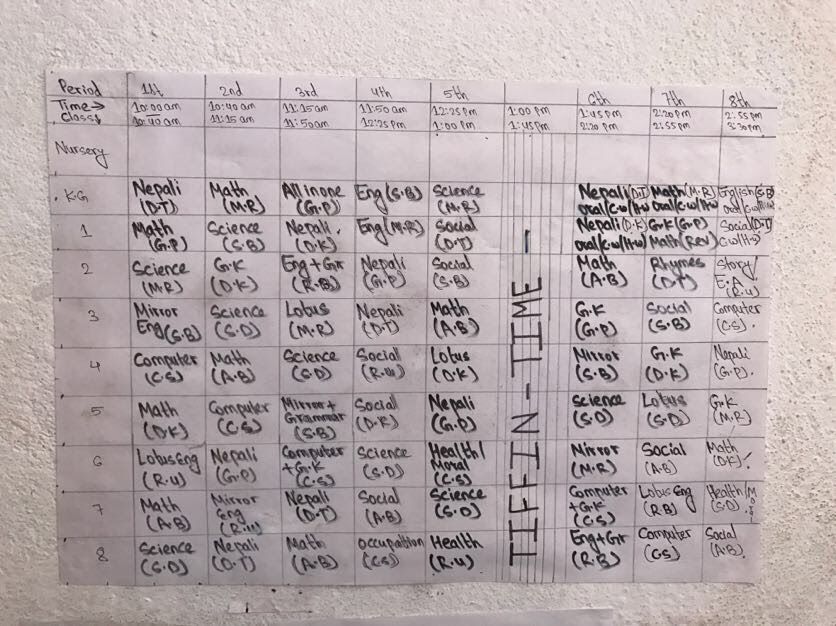 Period 1st 2nd 3rd 4th 5th 6th 7th 8th
Time→ 10:00 am 10:40 am 11:15 am 11:50 am 12:25 pm 1:00 pm 1:45 pm 2:20 pm 2:55 pm
Class↓ 10:40 am 11:15 am 11:50 am 12:25 pm 1:00 pm 1:45 pm 2:20 pm 2:55 pm 3:30 pm
Nursery
TIFFIN - TIME -
KG Nepali Math All in one Eng (S.B) Science Nepali (D.T) Math (M.R) English (S.B)
(D.T) (M.R) (G.P) (M.R) oral/c.w/H.w oral/c.w/H.w oral/c.w/H.w
1 Math Science Nepali. Eng (M.R) Social Nepali (D.K) G.K (G.P) Social (D.T)
(G.P) (S.B) (D.K) (D.T) oral/c.w/H.w Math (Rev) C.w/H.w
2 Science G.K Eng + Gr Nepali Social Math Rhymes Story/
(M.R) (D.K) (R.B) (G.P) (S.B) (A.B) (D.T) E.A
(R.U)
3 Mirror Science Lobus Nepali Math G.K Social Computer
Eng (S.B) (S.D) (M.R) (D.T) (A.B) (G.P) (S.B) (C.S).
4 Computer Math Science Social Lobus Mirror G.K Nepali
(C.S) (A.B) (S.D) (R.U) (D.K) (S.B) (D.K) (G.P).
5 Math Computer Mirror + Social Nepali Science Lobus G.K
(D.K) (C.S) Grammar (D.K) (G.P) (S.D) (S.D) (M.R)
(S.B)
6 Lobus Eng Nepali Computer Science Health/ Mirror Social Math
(R.U) (G.P) + G.K (S.D) Moral (M.R) (A.B) (D.K).
(C.S) (C.S)
7 Math Mirror Nepali Social Science Computer Lobus Eng Health/Moral
(A.B) Eng (D.T) (A.B) (S.D) + G.K (R.B) (S.D).
(R.U) (C.S)
8 Science Nepali Math Occupaition Health Eng + Gr Computer Social
(S.D) (D.T) (A.B) (C.S) (R.U) (R.B) (C.S) (A.B).